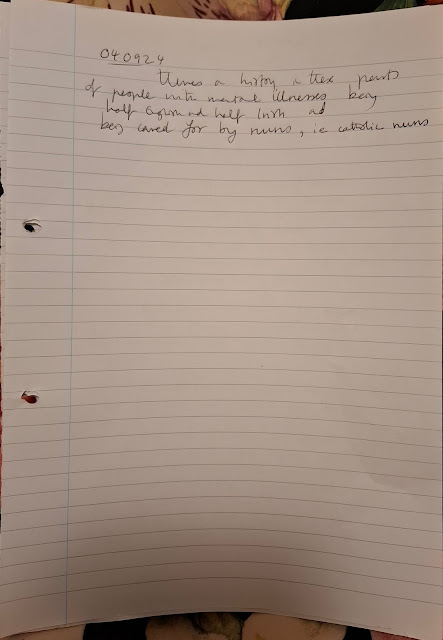 040924
Theres a history in thex parts
of people with mental illnesses being
half and half Irish ad
being cared for by nuns, ie catholic nuns